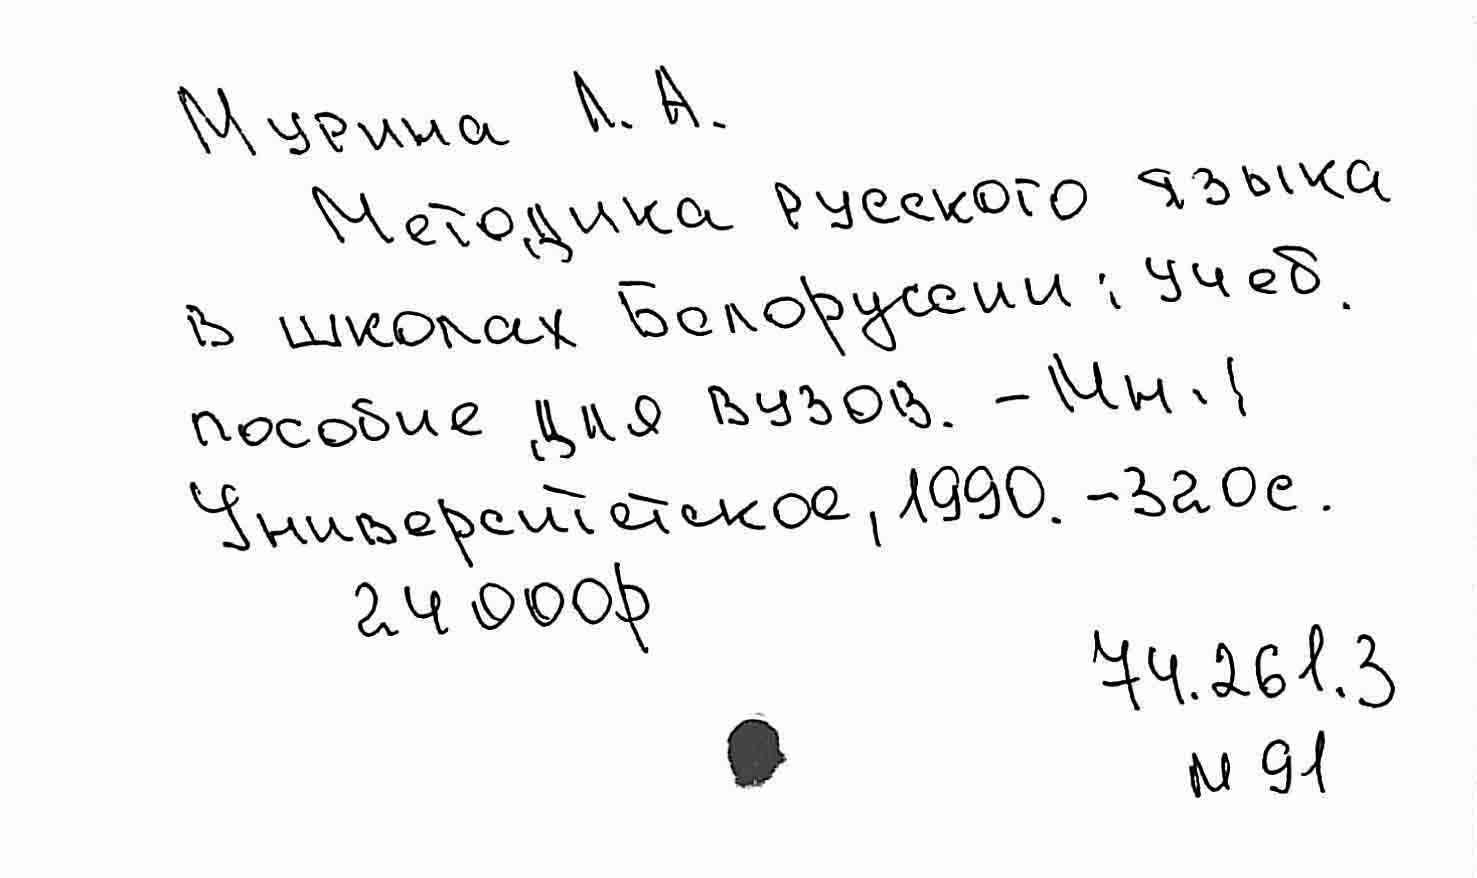 Мурина Л. А.
Методика русского языка
в школах Белоруссии: Учеб.
пособие для вузов. - Мн.:
Университетское, 1990. - 320с.
24000р
74.261.3
М 91